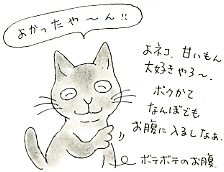 よかったや〜ん!!
よネコ、甘いもん
大好きやろ〜、
ボクかて
なんぼでも
お腹に入るしなぁ。
ボテボテのお腹